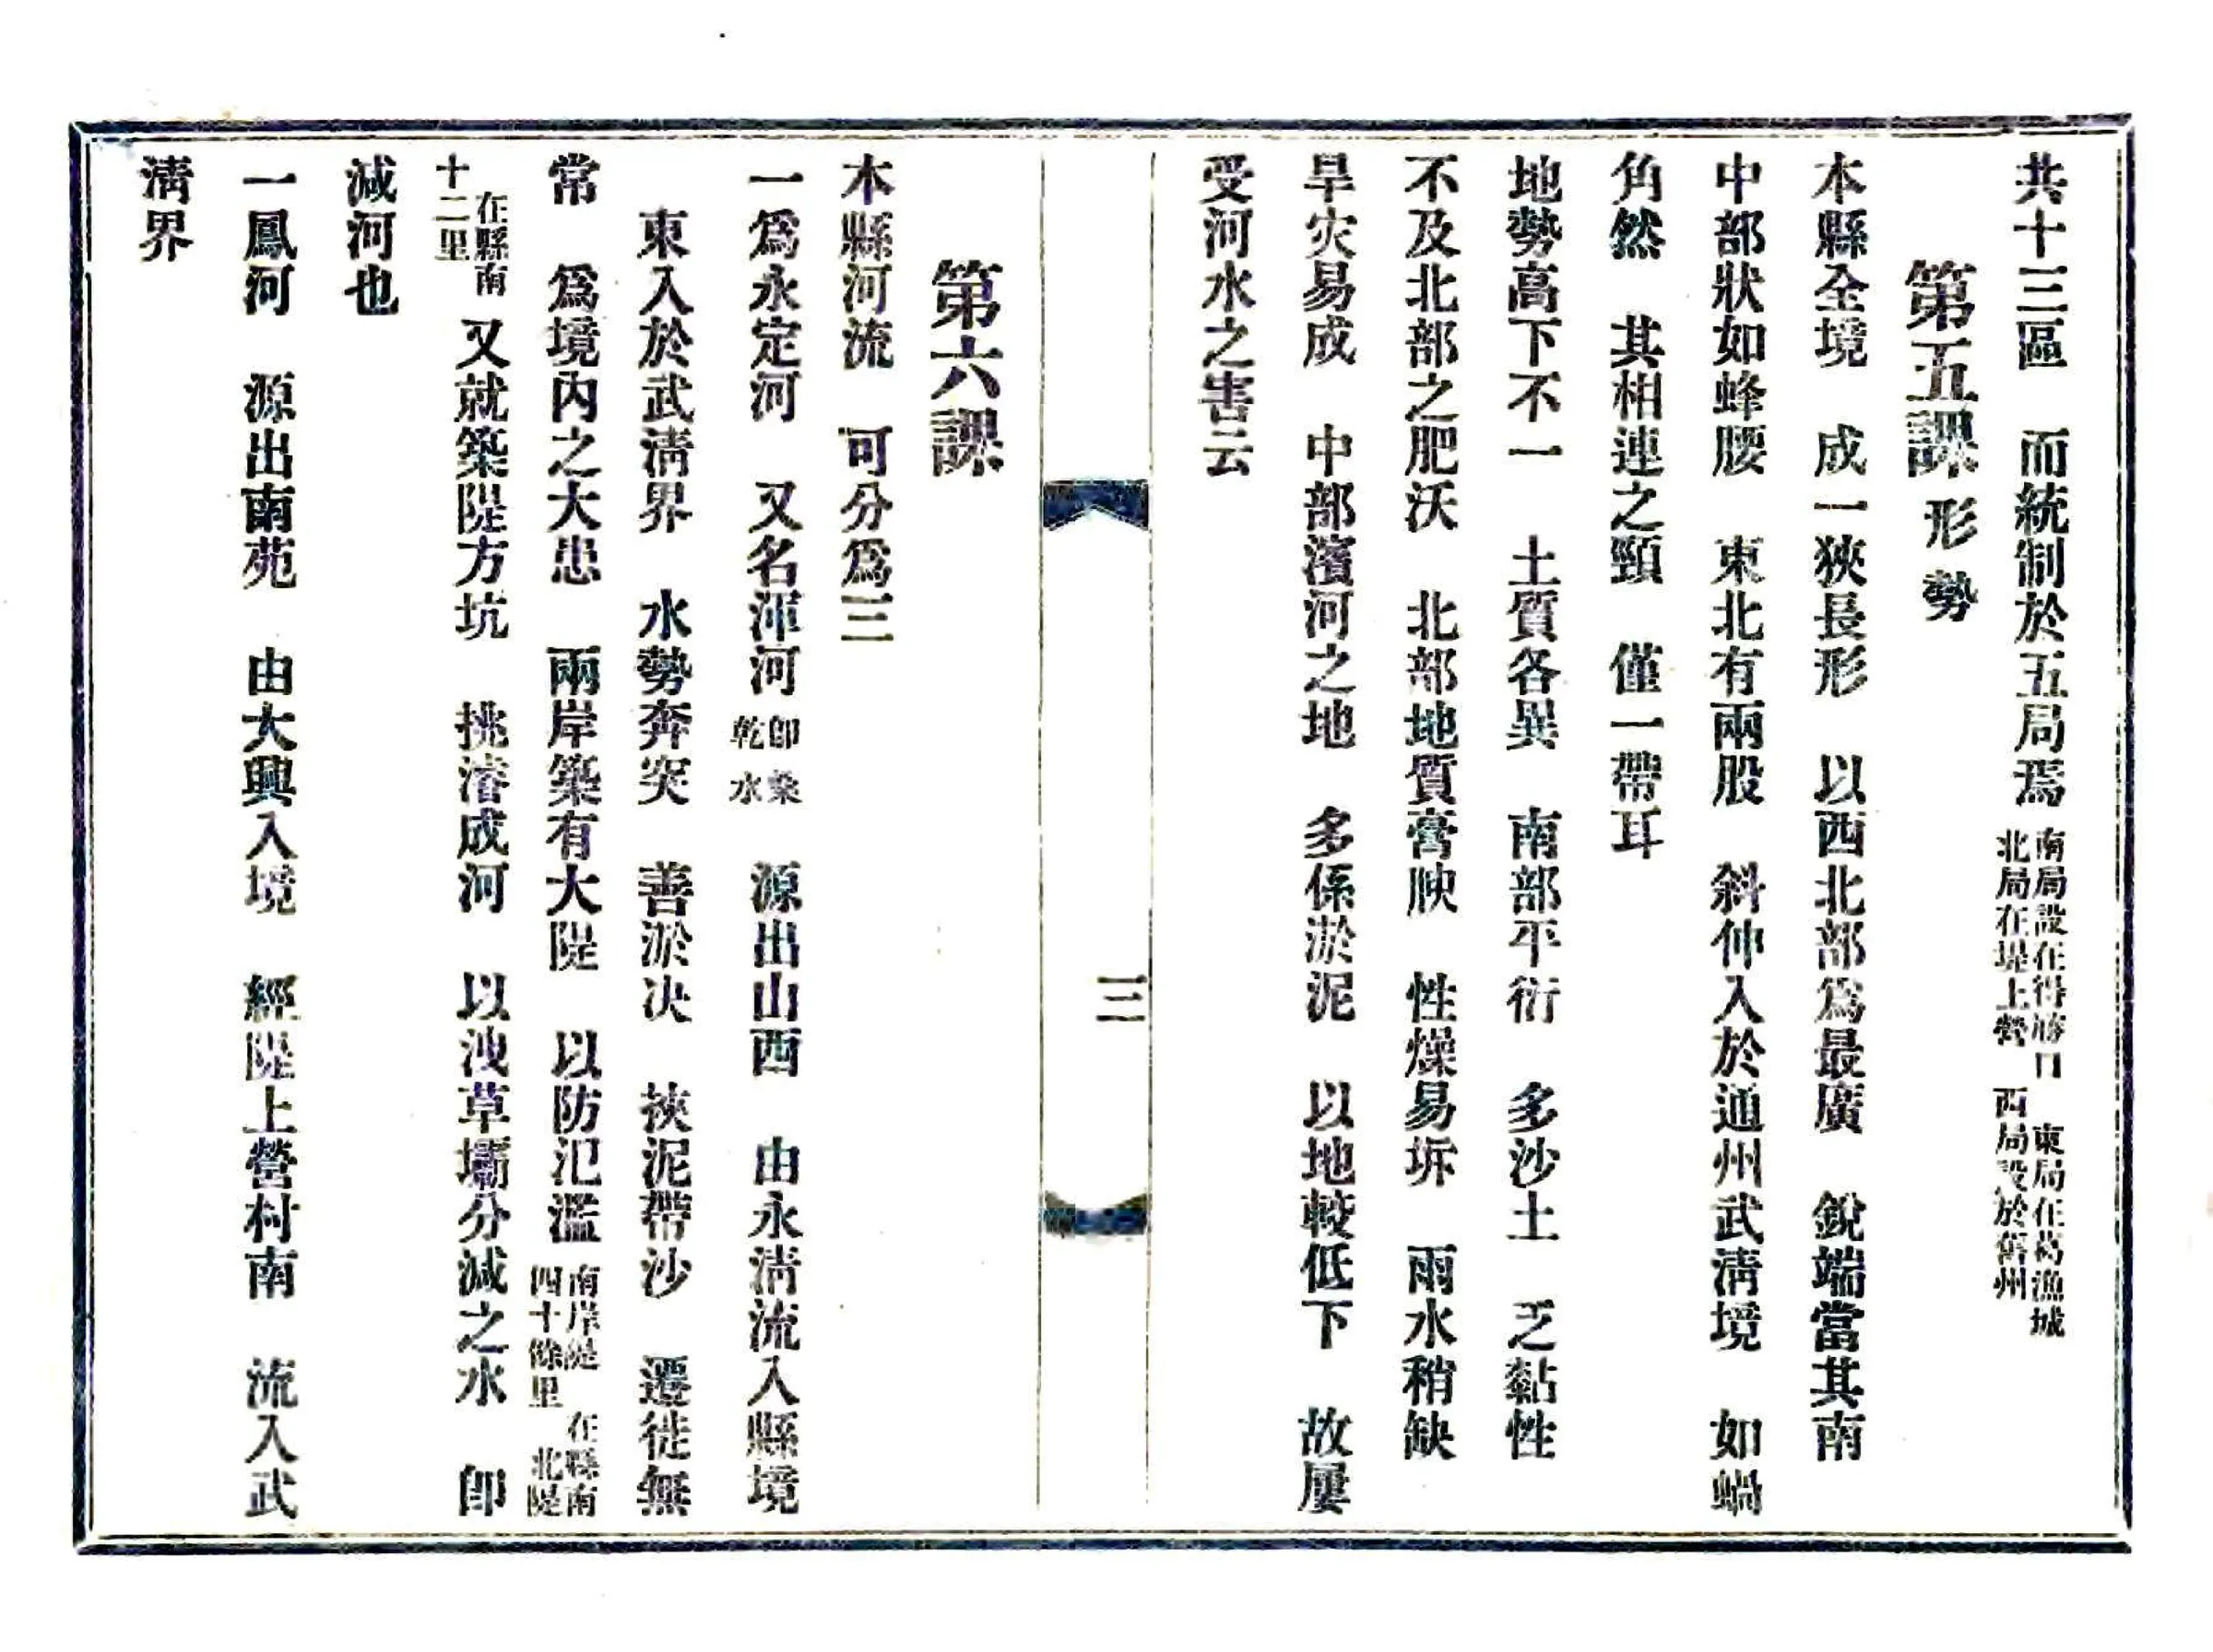 共十三區　而統制於五局焉　南局設在得勝口　東局在葛漁城　北局在堤上營　西局設於舊州
第五課　形勢
本縣全境　成一狹長形　以西北部爲最廣　銳端當其南
中部狀如蜂腰　東北有兩股　斜伸入於通州武淸境　如蝸
角然　其相連之頸　僅一帶耳
地勢高下不一　土質各異　南部平衍　多沙土　乏黏性
不及北部之肥沃　北部地質膏腴　性燥易坼　雨水稍缺
旱灾易成　中部濱河之地　多係淤泥　以地較低下　故屢
受河水之害云
三
第六課
本縣河流　可分爲三
一爲永定河　又名渾河　卽桑乾水　源出山西　由永淸流入縣境
東入於武淸界　水勢奔突　善淤决　挾泥帶沙　遷徙無
常　爲境內之大患　兩岸築有大隄　以防氾濫　南岸隄在縣南四十餘里　北隄
在縣南十二里　又就築隄方坑　挑濬成河　以洩草壩分減之水　卽
減河也
一鳳河　源出南苑　由大興入境　經隄上營村南　流入武
淸界